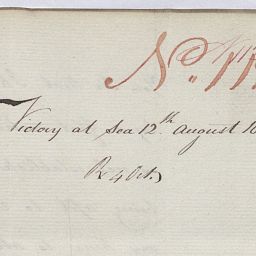 No.
Victory at Sea 12th August 18
Rx 4 Oct.